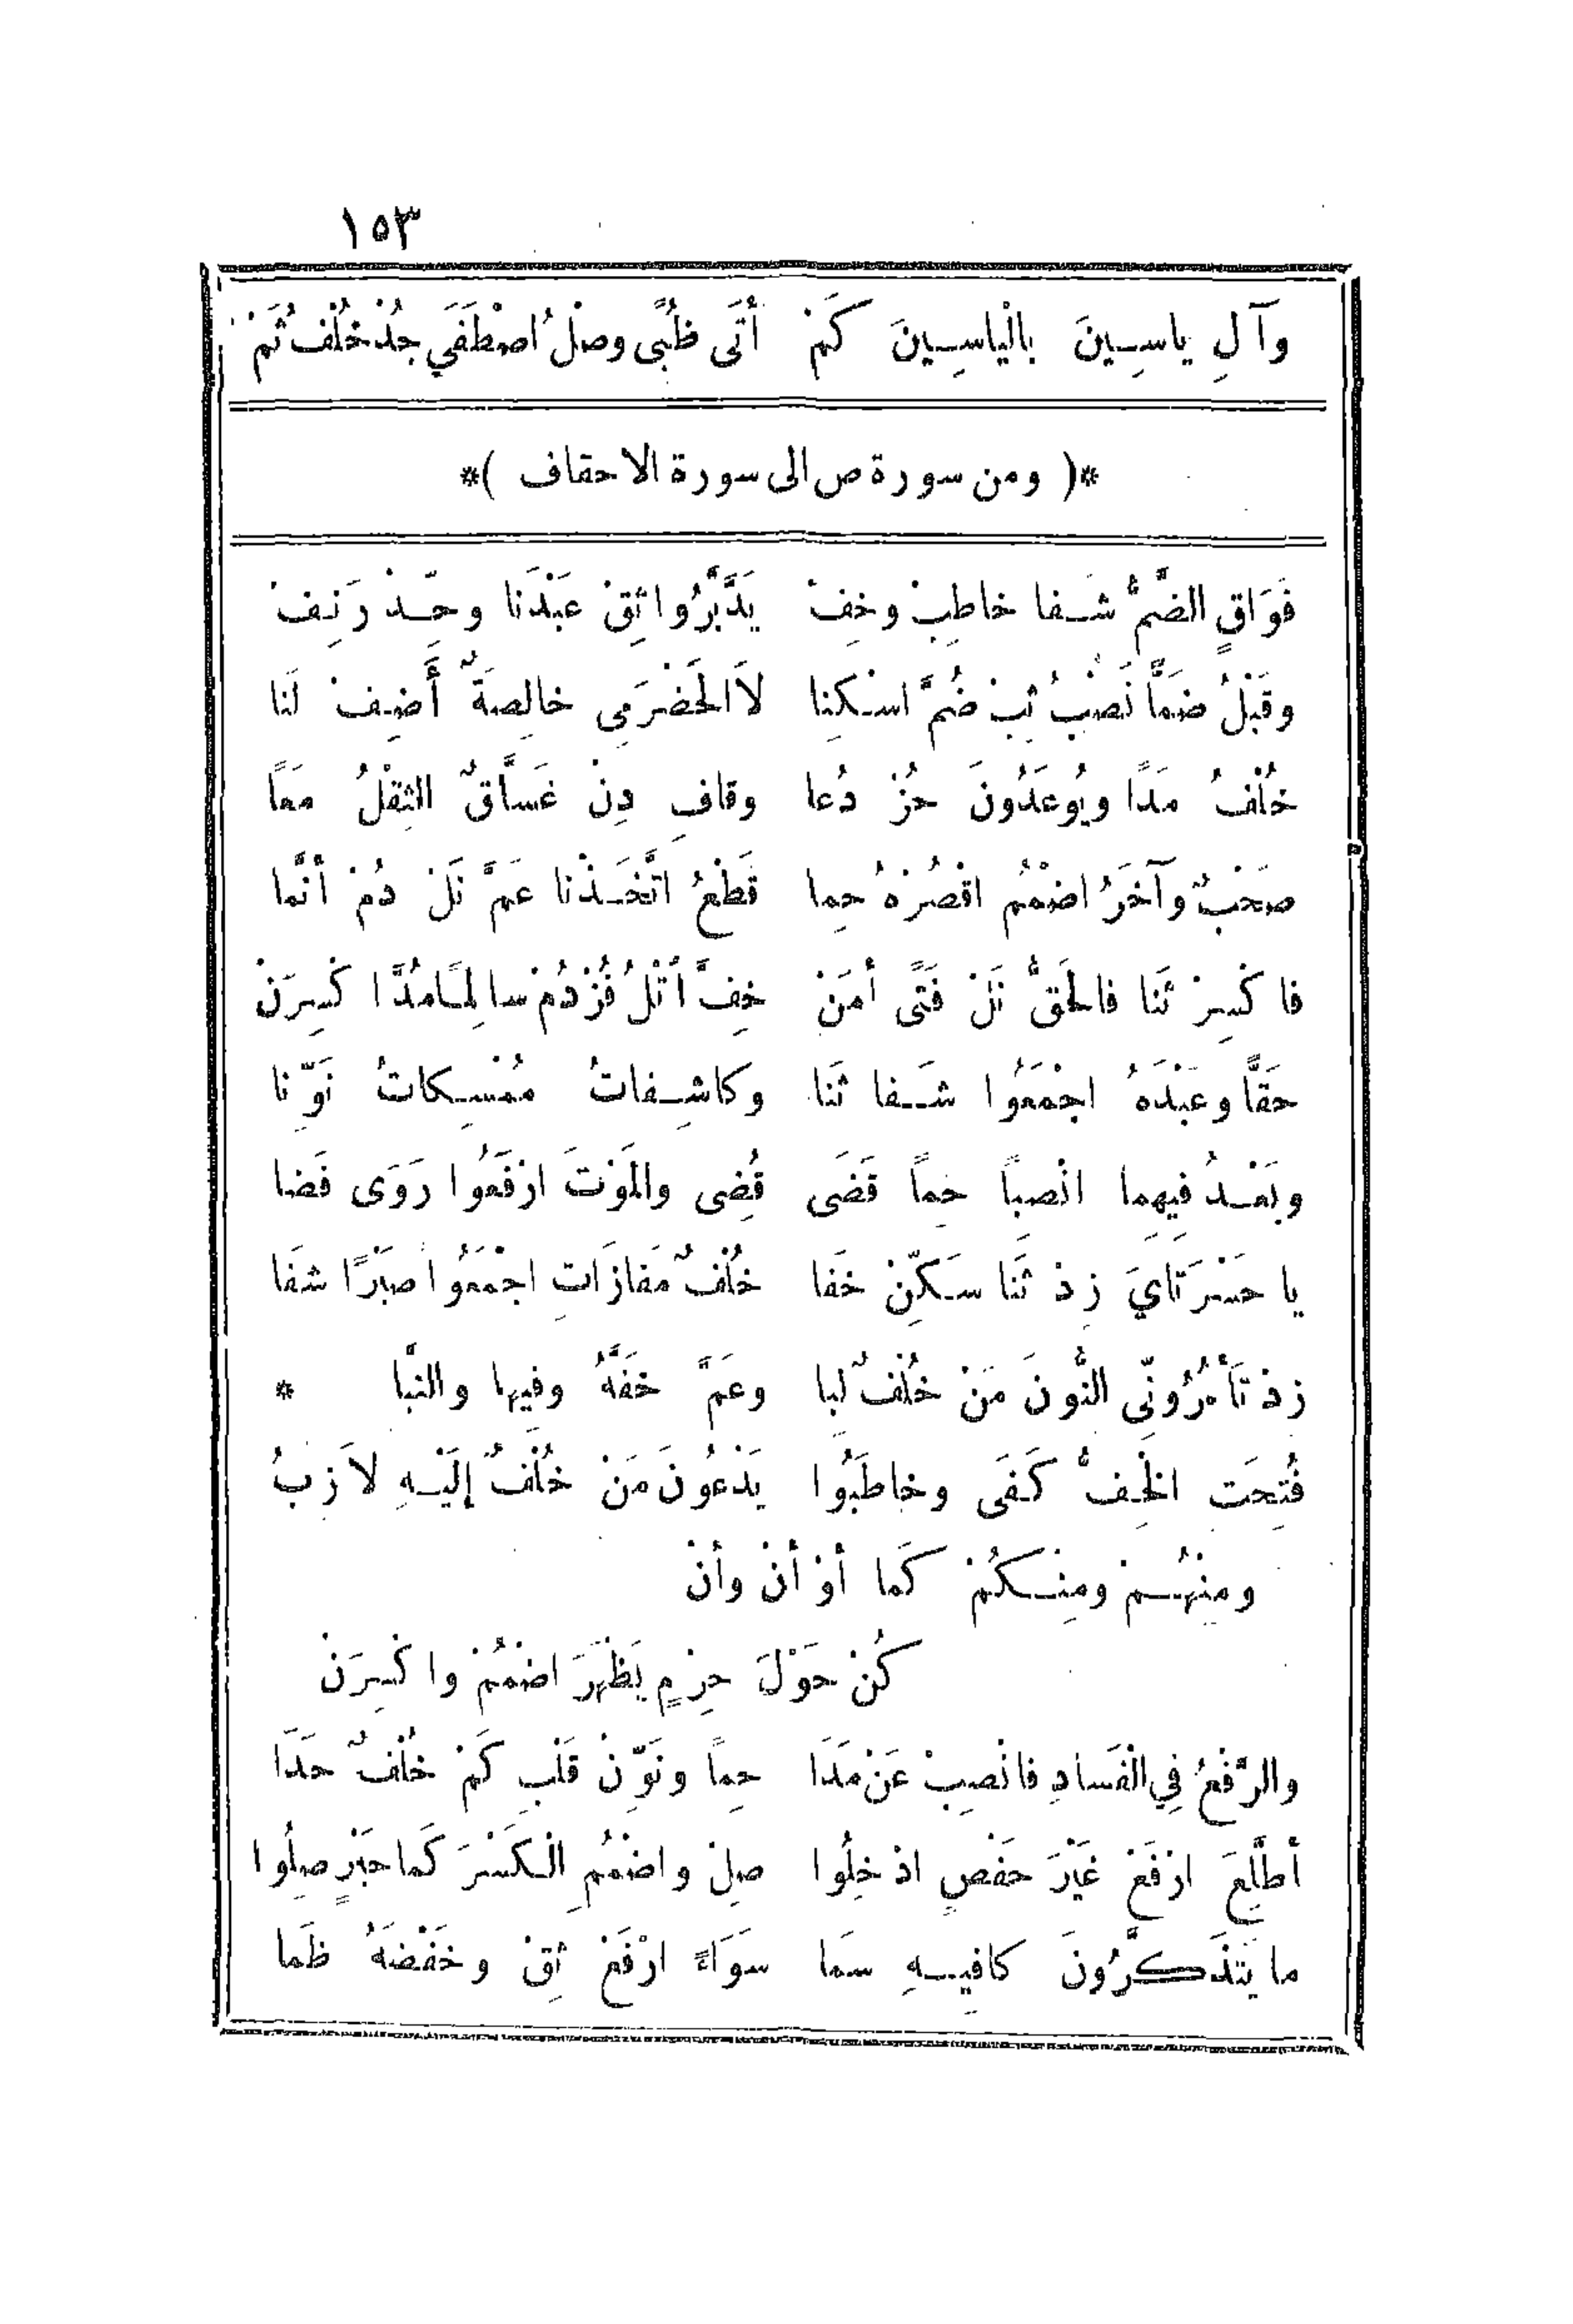 ١٥٣
وَآلِ ياسِينَ بالْياسِينَ كَمْ أَتَى ظُبًى وصْلُ اصْطَفَى جُدْ خُلْفُ ثَمْ
*( ومن سورة ص الى سورة الاحقاف )*
فَوَاقٍ الضَّمُّ شَفا خاطِبْ وخِفْ يَدَّبَّرُوا ثِقْ عَبْدَنا وحِّدْ دَنِفْ
وقَبْلُ ضَمَّا نُصْبُ ثِبْ ضُمَّ اسْكِنا لاَ الحَضْرَمِى خالِصَةٌ أَضِفْ لَنا
خُلْفُ مَدًا ويُوعَدُونَ حُزْ دُعا وقافِ دِنْ غَسَّاقٌ الثِقْلُ مَعاً
صَحْبٌ وآخَرُ اضْمُمِ اقْصُرْهُ حِما قَطْعُ اتَّخَذْنا عَمَّ نَلْ دُمْ أنَّما
فاكْسِرْ ثَنا فالحَقُّ نَلْ فَتًى أمَنْ خِفَّ اتْلُ فُزْ دُمْ سالِمًا مُدَّا كْسِرَنْ
حَقًّا وعَبْدَهُ اجْمَعُوا شَفا ثَنا وكاشِفاتُ مُمْسِكاتُ نَوِّنا
وبَعْدُ فِيهِما انْصِباً حِماً قَضَى قُضِى والمَوْتَ ارْفَعُوا رَوَى فَضا
يا حَسْرَتَايَ زِدْ ثَنا سَكِّنْ خَفا خُلْفٌ مَفازَاتِ اجْمَعُوا صَبْرًا شَفَا
زِدْ تَأْمُرُونِّى النُّونَ مَنْ خُلْفٌ لِبا وعَمَّ خَفَّهُ وفِيها والنَّبا *
فُتِحَت الخِفُّ كَفَى وخاطَبُوا يَدْعُونَ مَنْ خُلْفٌ إلَيْهِ لاَزِبُ
ومِنْهُمْ ومِنْكُمْ كَما أوْ أنْ وأنْ
كُنْ حَوْلَ حِرْمٍ يَظْهَرَ اضْمُمْ واكْسِرَنْ
والرَّفْعُ فِى الْفَسادِ فانْصِبْ عَنْ مَدَا حِماً ونَوِّنْ قَلْبِ كَمْ خُلْفٌ حَدَا
أطَّلِعَ ارْفَعْ غَيْرَ حَفْصٍ ادْخِلُوا صِلْ واضْمُمِ الْكَسْرَ كَما حَبْرٍ صِلُوا
ما يَتَذَكَّرُونَ كافِيهِ سَما سَوَاءً ارْفَعْ ثِقْ وخَفْضَهُ ظَما